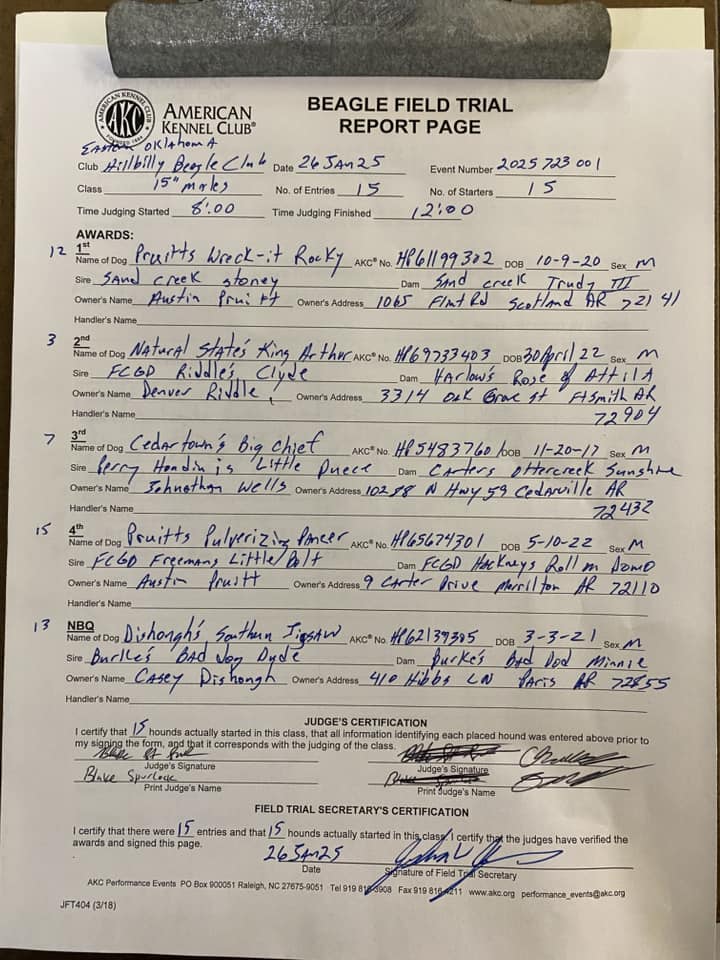 AMERICAN KENNEL CLUB
AKC
FOUNDED 1884
AMERICAN
KENNEL CLUB®
BEAGLE FIELD TRIAL
REPORT PAGE
Eastern Oklahoma
Club Hillbilly Beagle Club Date 26 Jan 25 Event Number 2025723001
Class 15" males No. of Entries 15 No. of Starters 15
Time Judging Started 8:00 Time Judging Finished 12:00
AWARDS:
12 1st
Name of Dog Pruitts Wreck-it Rocky AKC® No. HP61199302 DOB 10-9-20 Sex M
Sire Sand creek stoney Dam Sand creek Trudy III
Owner's Name Austin Pruitt Owner's Address 1065 Flint Rd Scotland AR 72141
Handler's Name
3 2nd
Name of Dog Natural State's King Arthur AKC® No. HP69733403 DOB 30 April 22 Sex M
Sire FCGD Riddle's Clyde Dam Harlow's Rose of Attila
Owner's Name Denver Riddle Owner's Address 3314 Oak Grove st Ft Smith AR
Handler's Name 72904
7 3rd
Name of Dog Cedartown's Big Chief AKC® No. HP54837601 DOB 11-20-17 Sex M
Sire Perry Little Duece Dam Carters Ottercreek Sunshine
Owner's Name Johnathan Wells Owner's Address 10288 N Hwy 59 Cedarville AR
Handler's Name 72932
15 4th
Name of Dog Pruitts Pulverizing Pancer AKC® No. HP65674301 DOB 5-10-22 Sex M
Sire FCGD Freemans Little Bolt Dam FCGD Hackneys Roll m Domo
Owner's Name Austin Pruitt Owner's Address 9 Carter Drive Morrilton AR 72110
Handler's Name
13 NBQ
Name of Dog Dishongh's Southern Jigsaw AKC® No. HP62139305 DOB 3-3-21 Sex M
Sire Burke's Bad Dog Dyde Dam Burke's Bad Dod Minnie
Owner's Name Casey Dishongh Owner's Address 410 Hibbs LN Paris AR 72855
Handler's Name
JUDGE'S CERTIFICATION
I certify that 15 hounds actually started in this class, that all information identifying each placed hound was entered above prior to
my signing the form, and that it corresponds with the judging of the class.
Judge's Signature Judge's Signature
Blake Spurlock
Print Judge's Name Print Judge's Name
FIELD TRIAL SECRETARY'S CERTIFICATION
I certify that there were 15 entries and that 15 hounds actually started in this class. I certify that the judges have verified the
awards and signed this page.
26 Jan 25
Date Signature of Field Trial Secretary
AKC Performance Events PO Box 900051 Raleigh, NC 27675-9051 Tel 919 816-3908 Fax 919 816-4211 www.akc.org performance_events@akc.org
JFT404 (3/18)